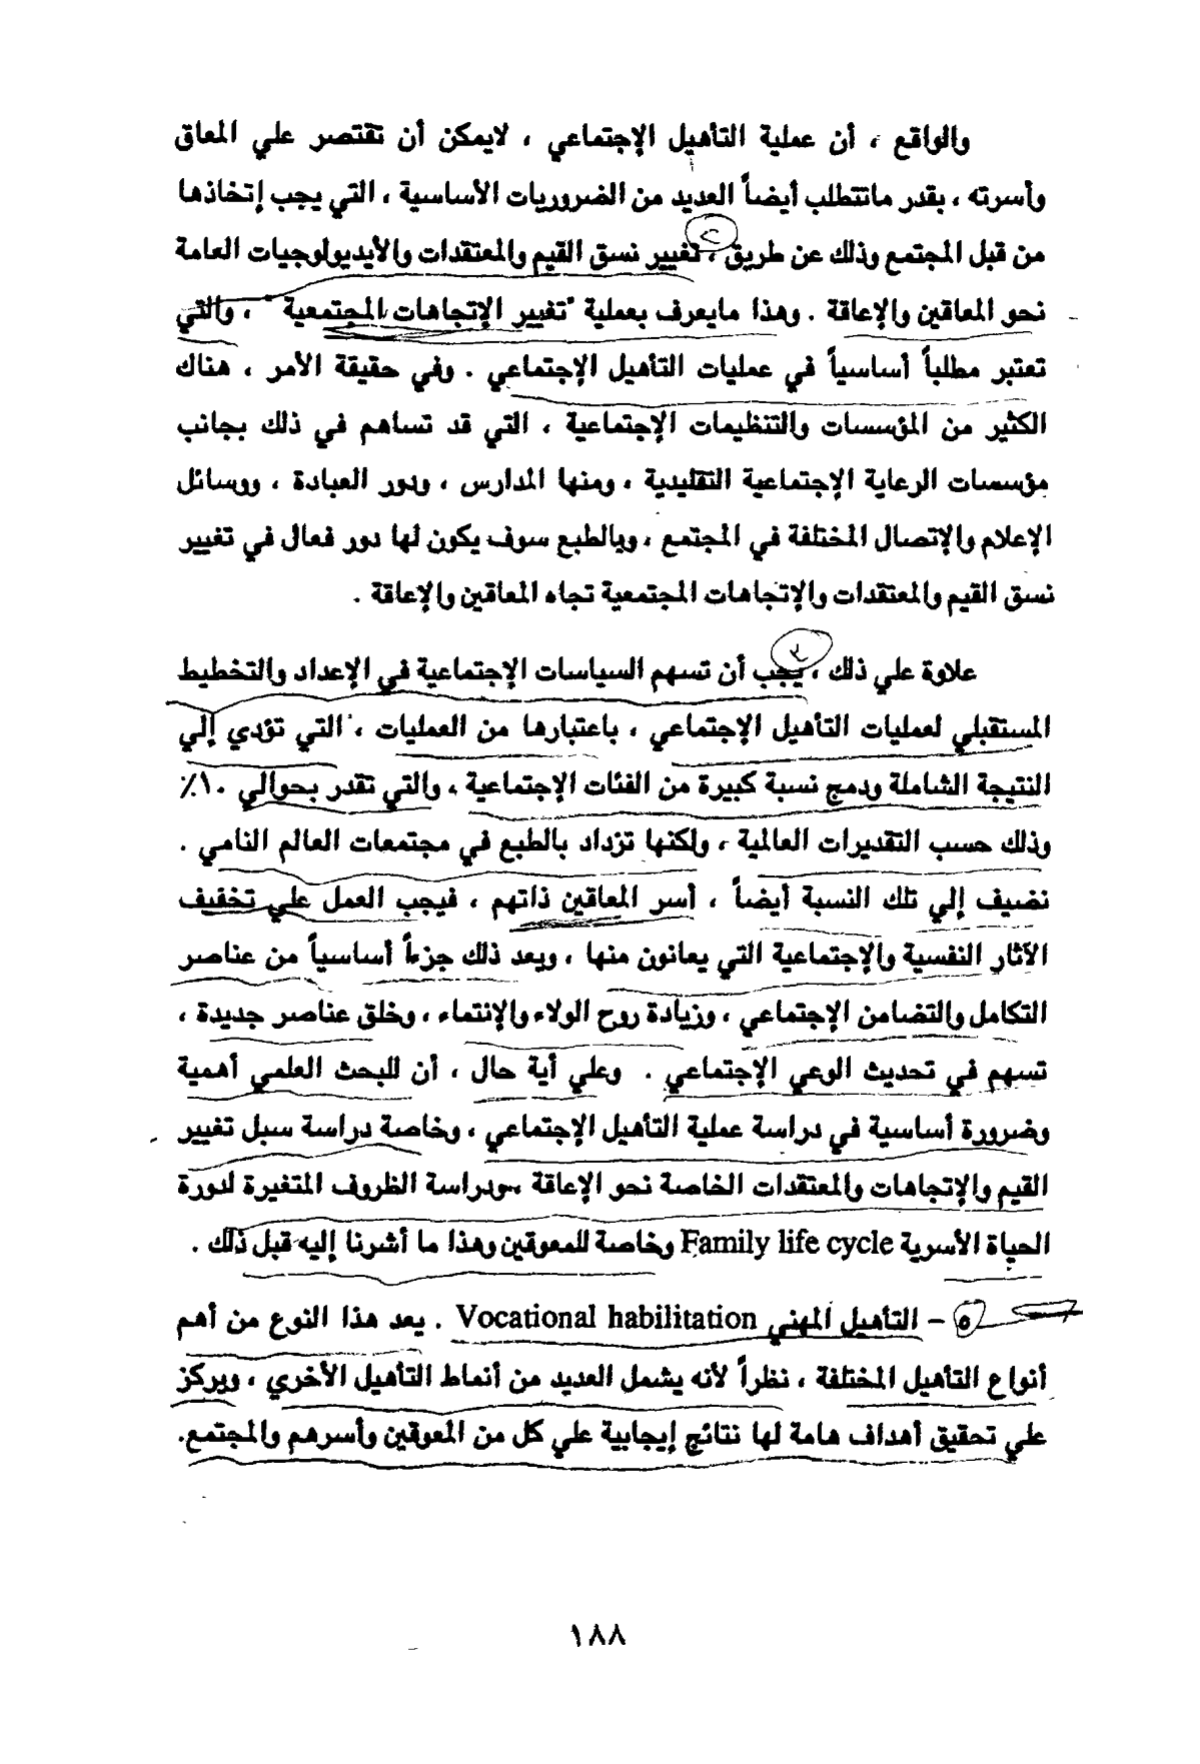 والواقع ، أن عملية التأهيل الإجتماعي ، لايمكن أن تقتصر علي المعاق
وأسرته ، بقدر ماتتطلب أيضاً العديد من الضروريات الأساسية ، التي يجب إتخاذها
من قبل المجتمع وذلك عن طريق ، تغيير نسق القيم والمعتقدات والأيديولوجيات العامة
نحو المعاقين والإعاقة . وهذا مايعرف بعملية "تغيير الإتجاهات المجتمعية" ، والتي
تعتبر مطلباً أساسياً في عمليات التأهيل الإجتماعي . وفي حقيقة الأمر ، هناك
الكثير من المؤسسات والتنظيمات الإجتماعية ، التي قد تساهم في ذلك بجانب
مؤسسات الرعاية الإجتماعية التقليدية ، ومنها المدارس ، ودور العبادة ، ووسائل
الإعلام والإتصال المختلفة في المجتمع ، وبالطبع سوف يكون لها دور فعال في تغيير
نسق القيم والمعتقدات والإتجاهات المجتمعية تجاه المعاقين والإعاقة .
علاوة علي ذلك ، يجب أن تسهم السياسات الإجتماعية في الإعداد والتخطيط
المستقبلي لعمليات التأهيل الإجتماعي ، باعتبارها من العمليات ، التي تؤدي إلي
النتيجة الشاملة ودمج نسبة كبيرة من الفئات الإجتماعية ، والتي تقدر بحوالي ١٠٪
وذلك حسب التقديرات العالمية ، ولكنها تزداد بالطبع في مجتمعات العالم النامي .
نضيف إلي تلك النسبة أيضاً ، أسر المعاقين ذاتهم ، فيجب العمل علي تخفيف
الآثار النفسية والإجتماعية التي يعانون منها ، ويعد ذلك جزءاً أساسياً من عناصر
التكامل والتضامن الإجتماعي ، وزيادة روح الولاء والإنتماء ، وخلق عناصر جديدة ،
تسهم في تحديث الوعي الإجتماعي . وعلي أية حال ، أن للبحث العلمي أهمية
وضرورة أساسية في دراسة عملية التأهيل الإجتماعي ، وخاصة دراسة سبل تغيير
القيم والإتجاهات والمعتقدات الخاصة نحو الإعاقة ودراسة الظروف المتغيرة لدورة
الحياة الأسرية Family life cycle وخاصة للمعوقين وهذا ما أشرنا إليه قبل ذلك .
٥ – التأهيل المهني Vocational habilitation . يعد هذا النوع من أهم
أنواع التأهيل المختلفة ، نظراً لأنه يشمل العديد من أنماط التأهيل الأخري ، ويركز
علي تحقيق أهداف هامة لها نتائج إيجابية علي كل من المعوقين وأسرهم والمجتمع.
١٨٨